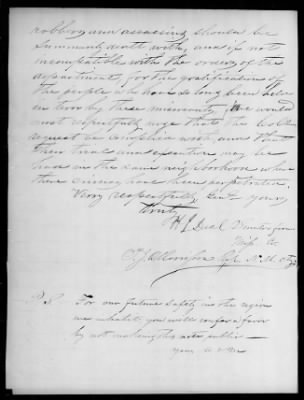 robbers and assassins should be
summarily dealt with, and if not
incompatible with the orders of the
department, for the gratification of
the people who have so long been held
in terror by these miscreants, we would
most respectfully urge that the
request be complied with, and that
their trial and execution may be
had in the same neighborhood where
their crimes have been perpetrated.
Very respectfully, Gen'l yours,
H J Deal
N. M.
P.S. For our future safety in the region
we inhabit, you will confer a favor
by not making this note public —
yours